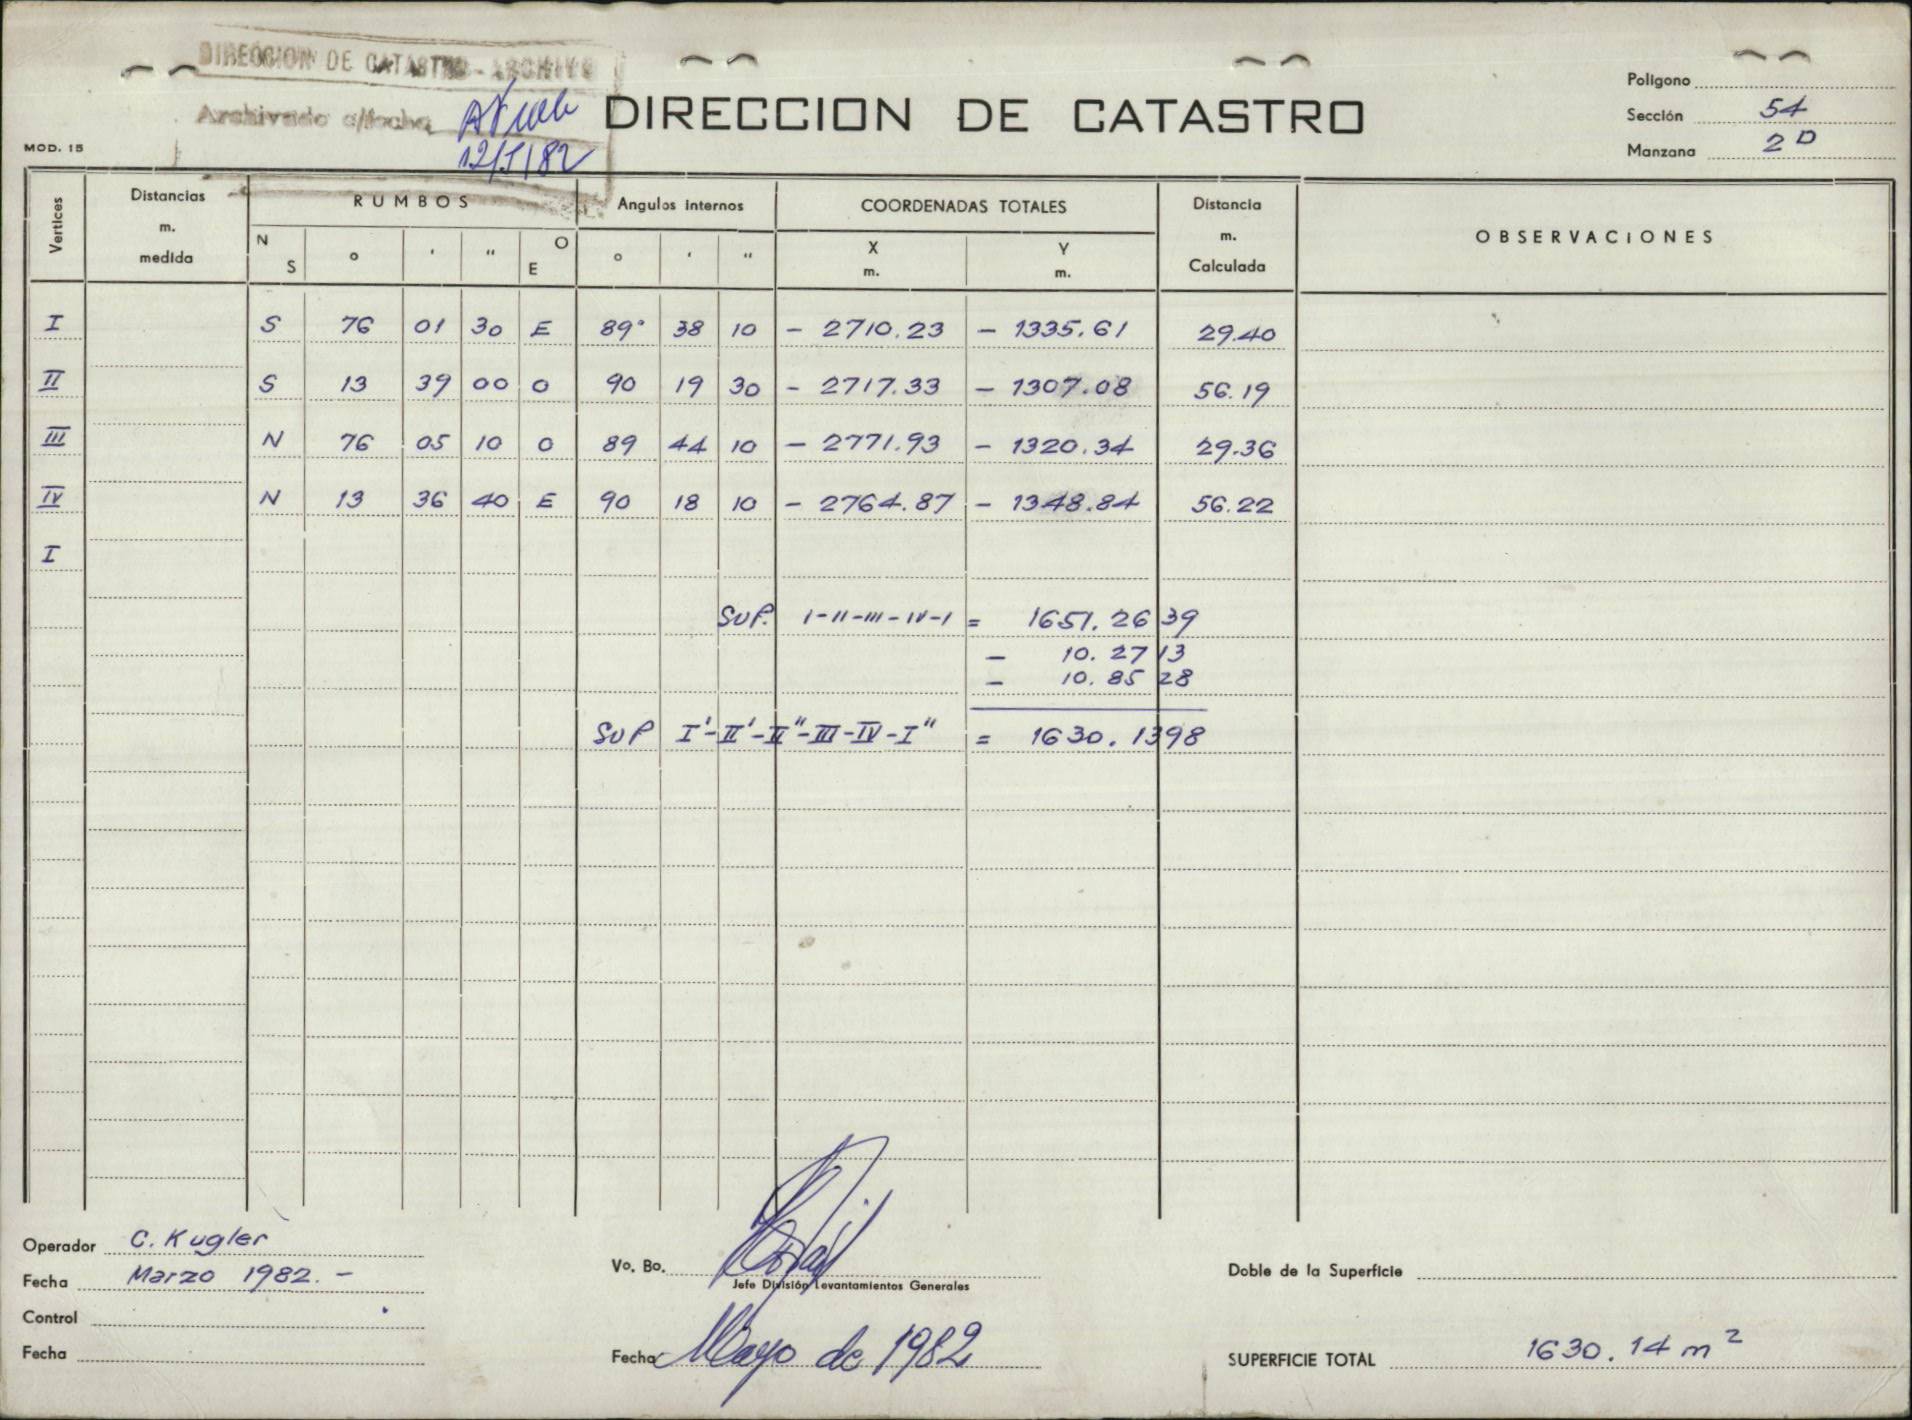 DIRECCION DE CATASTRO - ARCHIVO
Archivado c/fecha
12/5/82
DIRECCION DE CATASTRO
MOD. 15
Polígono
Sección 54
Manzana 2 D
Vertices Distancias m. medida RUMBOS Angulos internos COORDENADAS TOTALES Distancia m. Calculada OBSERVACIONES
N S ° ' " O E ° ' " X m. Y m.
I S 76 01 30 E 89° 38 10 - 2710.23 - 1335.61 29.40
II S 13 39 00 O 90 19 30 - 2717.33 - 1307.08 56.19
III N 76 05 10 O 89 44 10 - 2771.93 - 1320.34 29.36
IV N 13 36 40 E 90 18 10 - 2764.87 - 1348.84 56.22
I
SUP. I-II-III-IV-I = 1651.2639
- 10.2713
- 10.8528
SUP I'-II'-II"-III-IV-I" = 1630.1398
Operador C. Kugler
Fecha Marzo 1982.-
Control
Fecha
Vo. Bo.
Jefe División Levantamientos Generales
Fecha Mayo de 1982
Doble de la Superficie
SUPERFICIE TOTAL 1630.14 m²